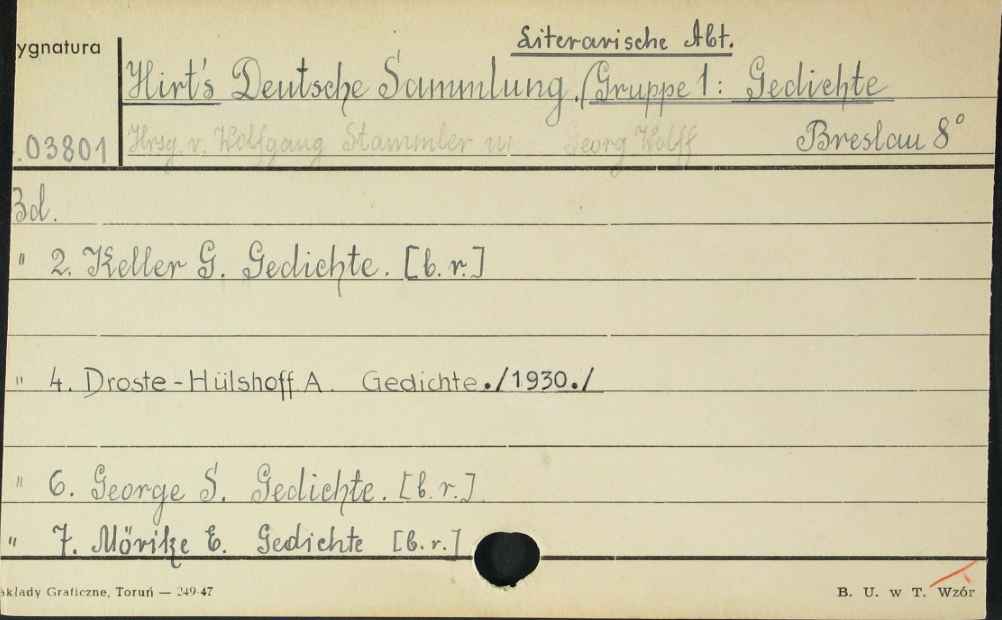 Literarische Abt.
ygnatura
Hirt's Deutsche Sammlung./Gruppe 1: Gedichte
.03801
Hrsg. v. Wolfgang Stammler u Georg Wolff Breslau 8°
Bd.
" 2. Keller G. Gedichte. [b.r.]
" 4. Droste-Hülshoff A. Gedichte./1930./
" 6. George S. Gedichte. [b.r.]
" 7. Mörike E. Gedichte [b.r.]
akłady Graficzne, Toruń — 249-47
B. U. w T. Wzór